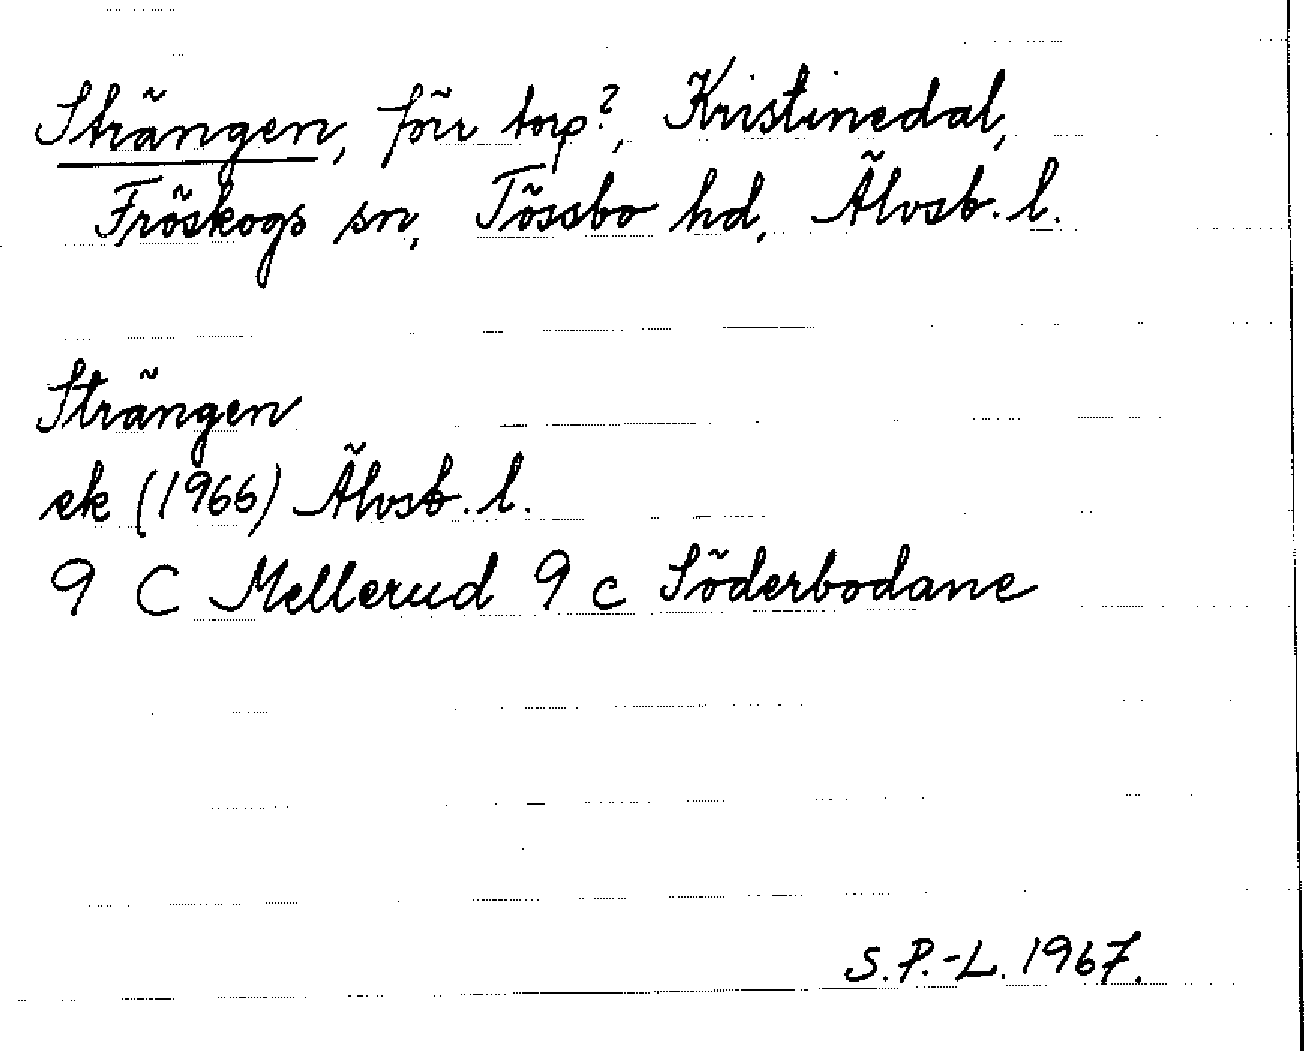 Strängen, förr torp?, Kristinedal,
Fröskogs sn, Tössbo hd, Älvsb. l.
Strängen
ek (1966) Älvsb. l.
9 C Mellerud 9 c Söderbodane
S. P.-L. 1967.